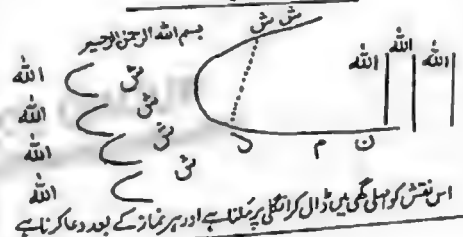 ش ش
بسم الله الرحمن الرحيم
الله الله الله
ش الله
ش الله
ش الله
ش الله
ن م ل
اس نقش کو اصلی گھی میں ڈال کر انگلی پر مَلنا ہے اور ہر نماز کے بعد دعا کرنا ہے